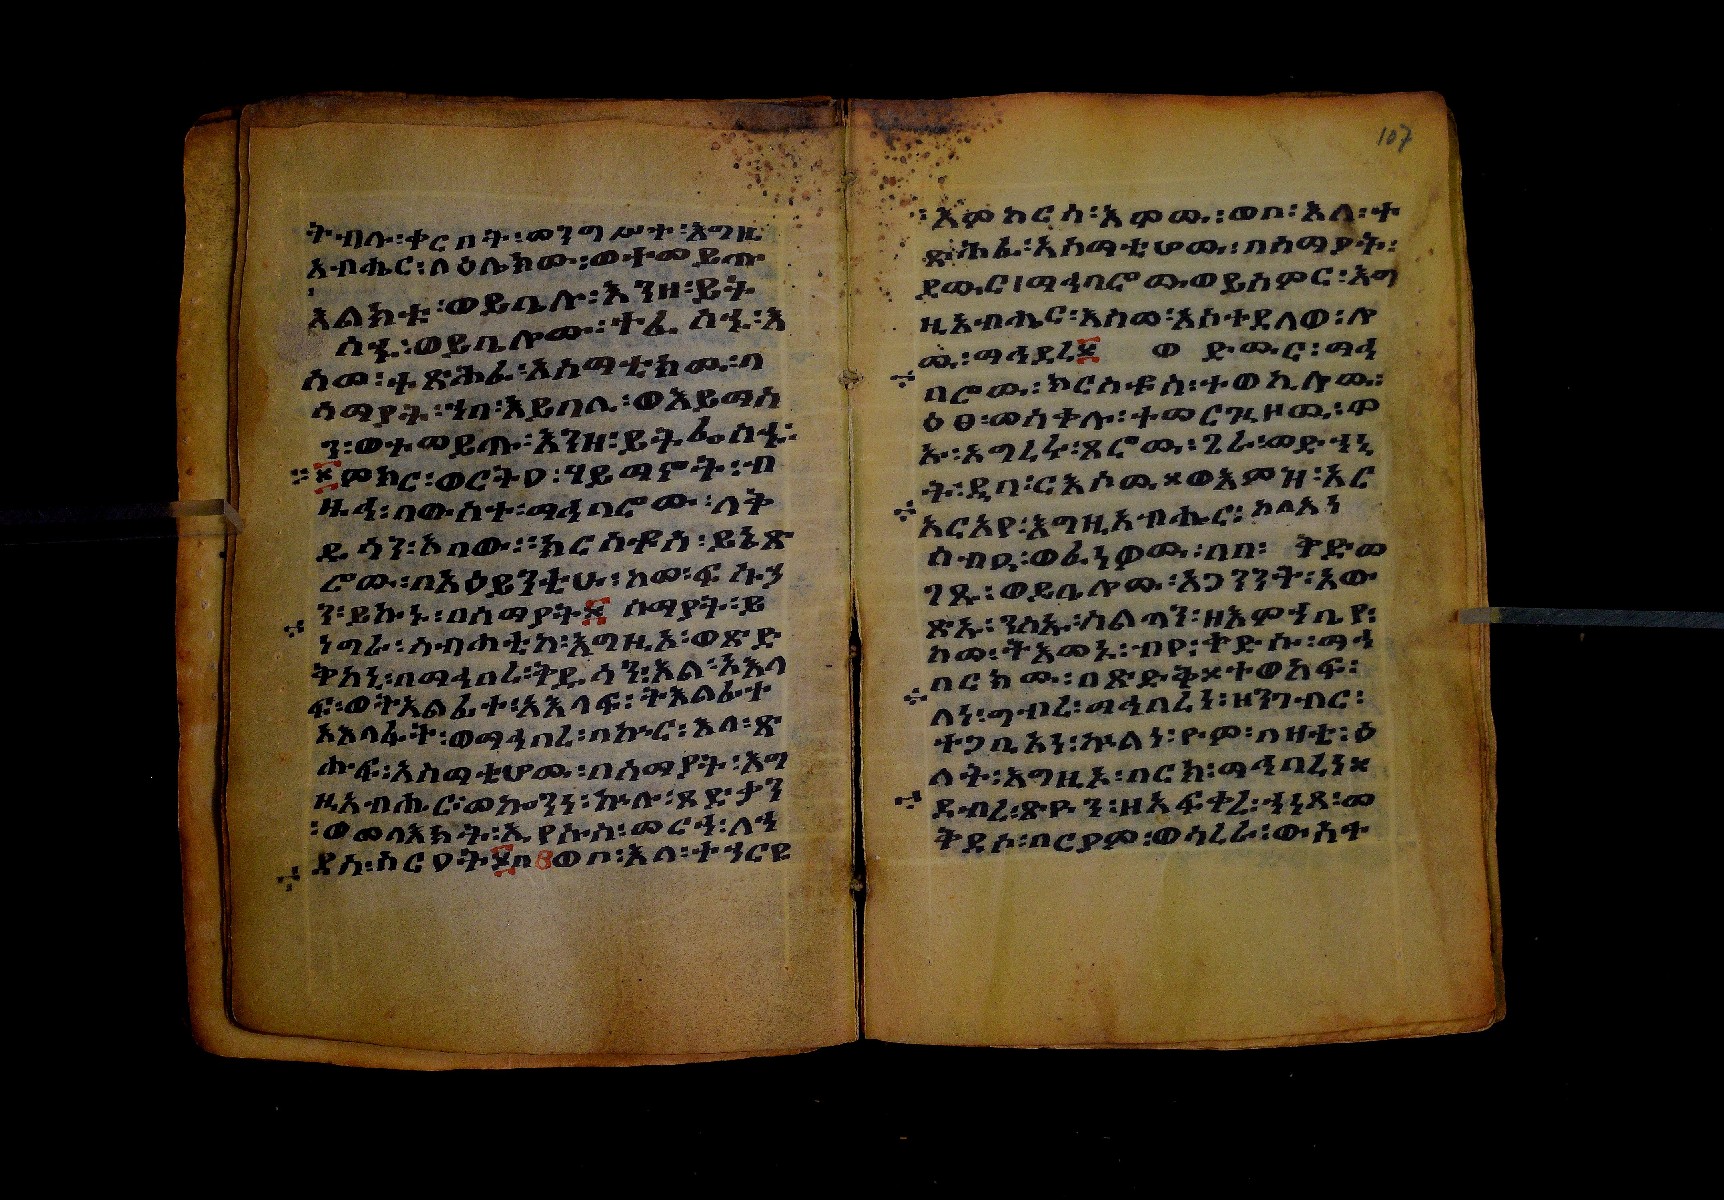 ትብሉ፡ቀርበት፡መንግሥተ፡እግዚ
አብሔር፡ለዕሌክሙ፡ወተመይጡ
እልክቱ፡ወይቤሉ፡እንዘ፡ይት
ሴፈዩ፡ወይቤሎሙ፡ተፈሥሑ፡እ
ስመ፡ተጽሕፈ፡አስማቲክሙ፡በ
ሰማያት፡ኀበ፡አይበሊ፡ወአይማስ
ን፡ወተመይጡ፡እንዘ፡ይትፌሥሑ፡
መክር፡ወርትዕ፡ሃይማኖት፡ብ
ዙኅ፡በውስተ፡ማኅበሮሙ፡ለቅ
ዱሳን፡አበው፡ክርስቶስ፡ይኔጽ
ሮሙ፡በአዕይንቲሁ፡ከመ፡ፍሱሃ
ን፡ይኩኑ፡በሰማያት፨ ሰማያት፡ይ
ነግራ፡ስብሐቲከ፡እግዚኦ፡ወጽድ
ቅከኒ፡በማኅበረ፡ቅዱሳን፡እል፡አእላ
ፍ፡ወትእልፊተ፡አእላፍ፡ትእልፊተ
አእላፋት፡ወማኅበረ፡በኵር፡እለ፡ጽ
ሑፍ፡አስማቲሆሙ፡በሰማያት፡እግ
ዚአብሔር፡መኰንነ፡ኵሉ፡ጻድቃን
፡ወመላእክት፡ኢየሱስ፡መርኅ፡ለኀ
ዳስ፡ስርዓት፨በ፰ወቦ፡እለ፡ተኀርዩ
107
፡እምከርሰ፡እሞሙ፡ወቦ፡እለ፡ተ
ጽሕፈ፡አስማቲሆሙ፡በሰማያት፡
ደሙር፡ማኅበሮሙ፡ወይሰምር፡እግ
ዚአብሔር፡እስመ፡አስተደለወ፡ሎ
ሙ፡ማኅደረ፨ ወ ድሙር፡ማኅ
በሮሙ፡ክርስቶስ፡ተወኪሎሙ፡
ዕፀ፡መስቀሉ፡ተመርጒዞሙ፡ሞ
ኡ፡አግረሩ፡ጸሮሙ፡ገራ፡መድኀኒ
ት፡ዲበ፡ርእሶሙ፨ወእምዝ፡አር
አርአየ፡እግዚአብሔር፡ከለአነ
ሰብዓ፡ወፈነዎሙ፡በበ፡ ቅድመ
ገጹ፡ወይቤሎሙ፡አጋንንት፡አው
ጽኡ፡ንስኡ፡ስልጣነ፡ዘእምኀቤየ፡
ከመ፡ትእመኑ፡ብየ፡ቀድሱ፡ማኅ
በርክሙ፡በጽድቅ፨ተወከፍ፡
ለነ፡ግብረ፡ማኅበረነ፡ዘንገብር፡
ተጋቢአነ፡ኵልነ፡ዮም፡በዛቲ፡ዕ
ለት፡እግዚኦ፡ባርክ፡ማኅበረነ፨
ደብረ፡ጽዮን፡ዘአፍቀረ፡ኀነጸ፡መ
ቅደሰ፡በርያም፡ወሳረራ፡ውስተ